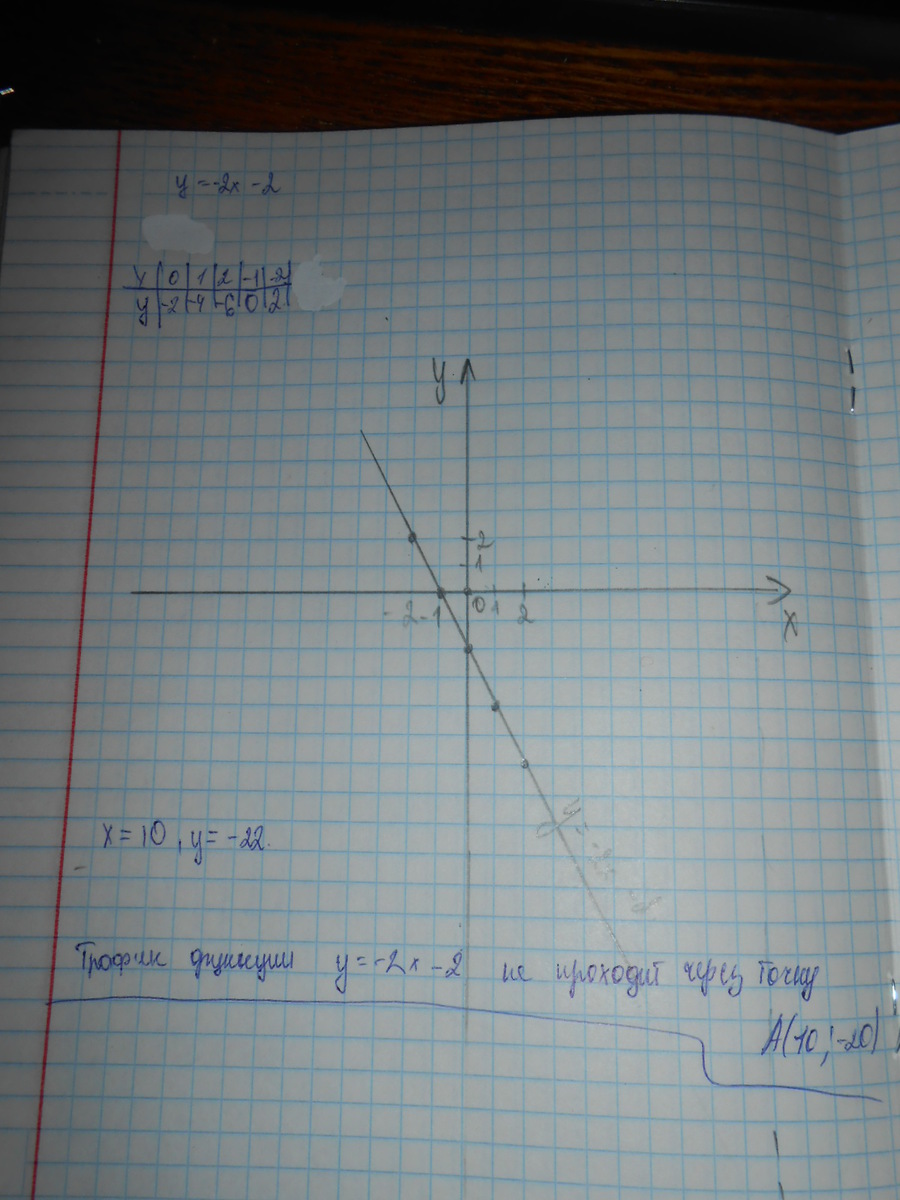 y = -2x - 2
x | 0 | 1 | 2 | -1 | -2 |
y | -2 | -4 | -6 | 0 | 2 |
y
2
1
-2 -1 0 1 2
x
x = 10, y = -22.
График функции y = -2x - 2 не проходит через точку
A(10; -20)